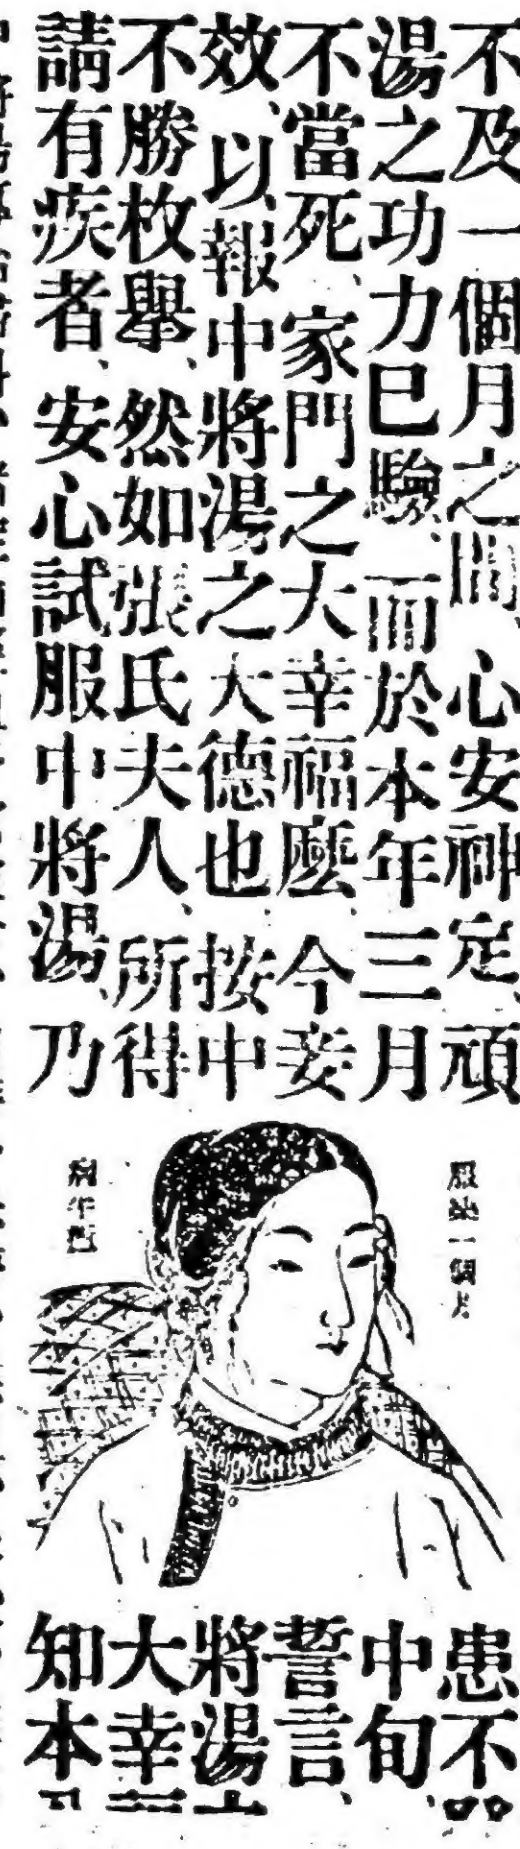 不及一個月之間、心安神定、頑
湯之功力已驗、而於本年三月
不當死、家門之大幸福麼、今妾
效、以報中將湯之大德也、按中
不勝枚舉、然如張氏夫人、所得
請有疾者、安心試服中將湯、乃
服藥一個月
患不
中旬、
誓言、
將湯
大幸
知本